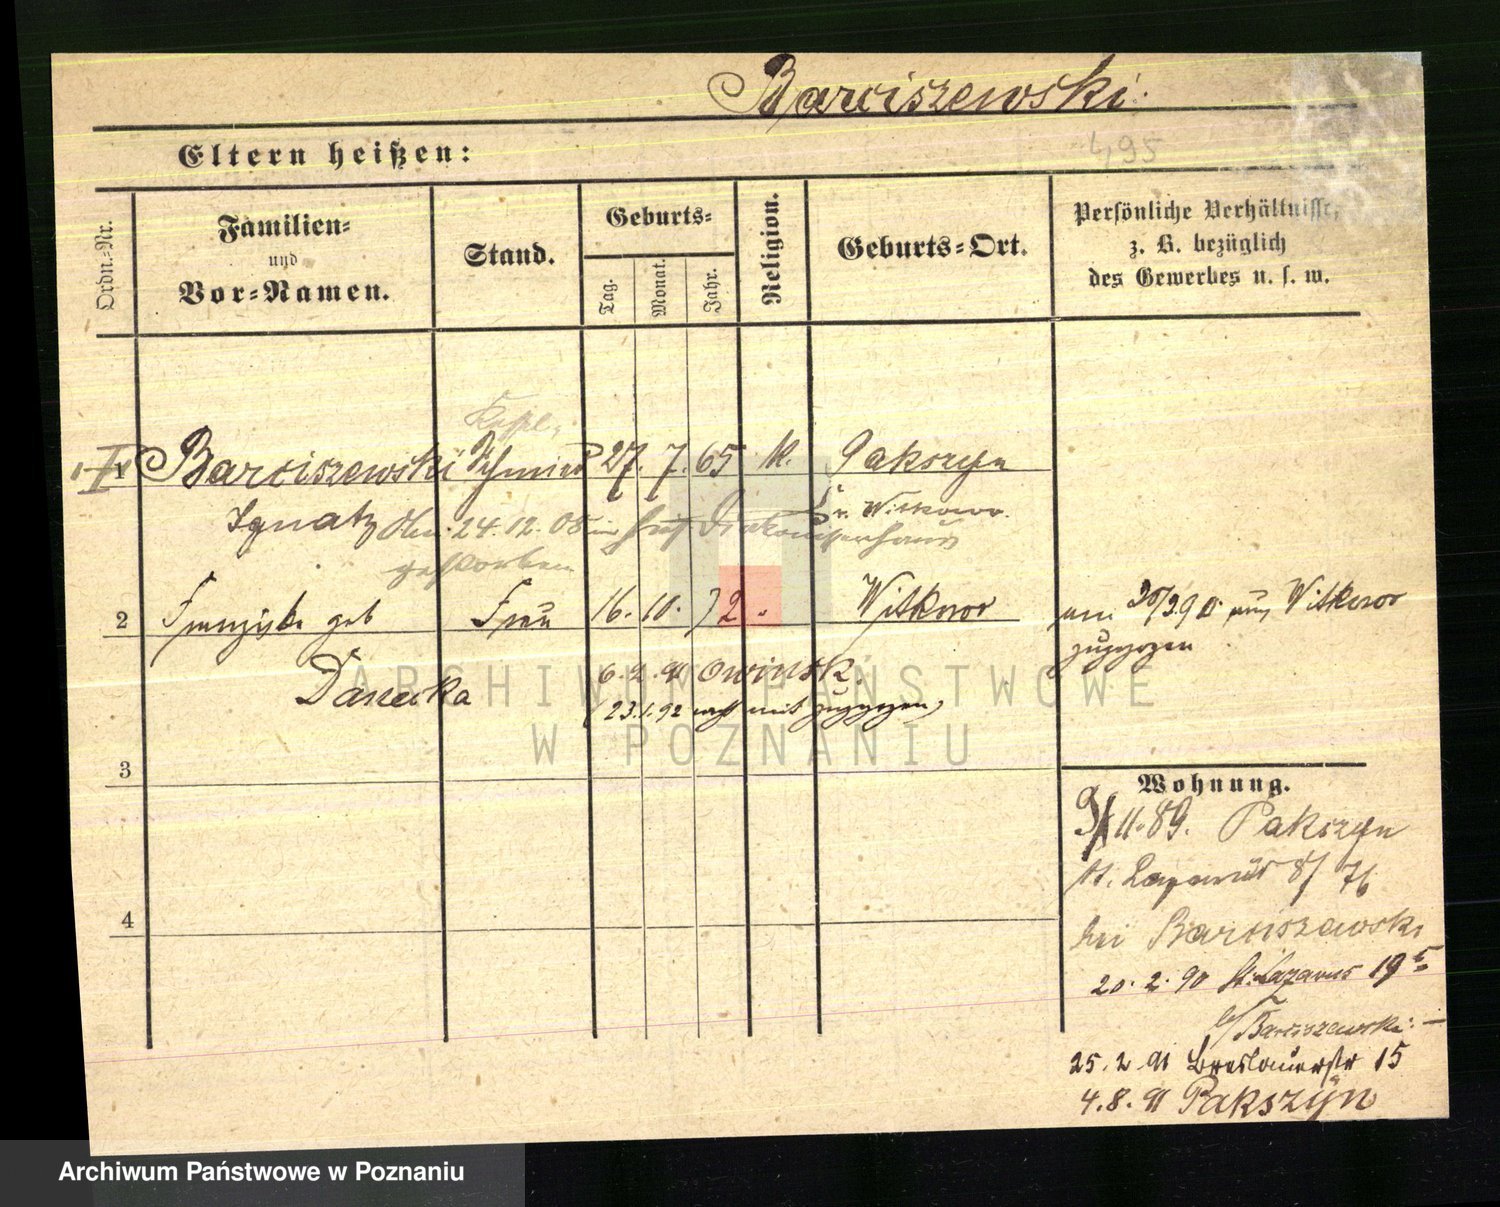 Barciszewski
Eltern heißen:
4,95
Ordn.-Nr.
Familien-
und
Vor-Namen.
Stand.
Geburts-
Tag.
Monat.
Jahr.
Religion.
Geburts-Ort.
Persönliche Verhältnisse,
z. B. bezüglich
des Gewerbes u. s. w.
1 Barciszewski Schmied 27. 7. 65 k. Pakszyn
Ignatz
Kr. Witkowo
24.12.05 im hies. Diakonissenhaus
gestorben
2 Franziska geb Frau 16. 10. 72 Witkowo
Danecka
am 20/3 90 aus Witkowo
zugezogen
6.2.91 Owinsk.
(23.1.92 nicht mit zugezogen)
3
4
Wohnung.
9/11.89. Pakszyn
St. Lazarus 8/76
bei Barciszewski
20.2.90 St. Lazarus 19
b/Barciszewski
25.2.91 Breslauerstr 15
4.8.91 Pakszyn
ARCHIWUM PAŃSTWOWE
W POZNANIU
Archiwum Państwowe w Poznaniu